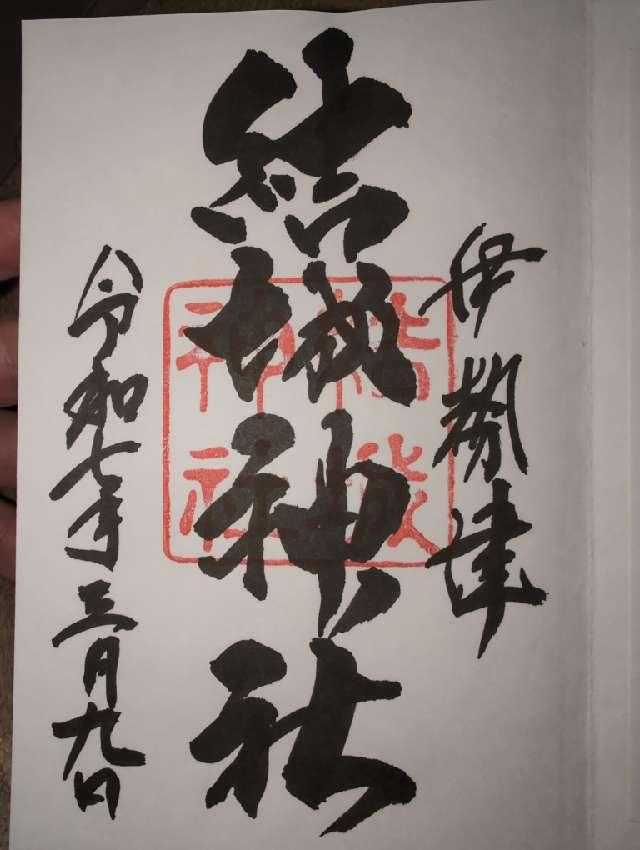 伊勢津
結城神社
結城神社
令和七年三月九日